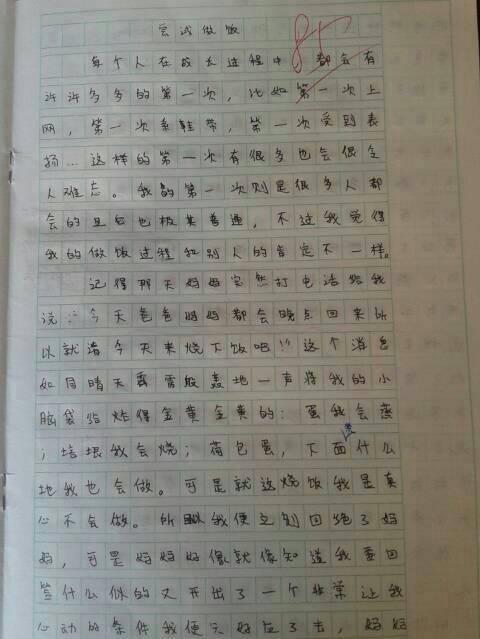 尝试做饭
85
每个人在成长过程中都会有
许许多多的第一次，比如第一次上
网，第一次系鞋带，第一次受到表
扬…这样的第一次有很多也会很令
人难忘。我的第一次则是很多人都
会的且也极其普通，不过我觉得
我的做饭过程和别人的肯定不一样。
记得那天妈妈突然打电话给我
说：今天爸爸妈妈都会晚点回来所
以就请今天来烧下饭吧！"这个消息
如同晴天霹雳般轰地一声将我的小
脑袋给炸得金黄金黄的：蛋我会蒸
；培根我会烧；荷包蛋，下面什么
地我也会做。可是就这烧饭我是真
心不会做。所以我便立刻回绝了妈
妈，可是妈妈好像就像知道我要回
答什么似的又开出了一个非常让我
心动的条件我便只好应了去，妈妈